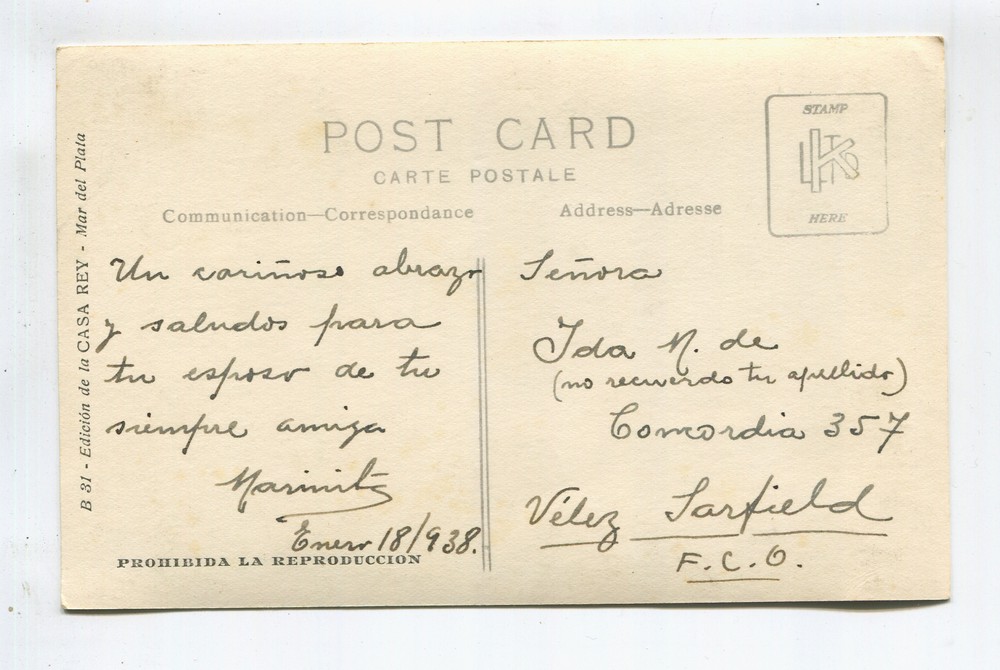 POST CARD
CARTE POSTALE
Communication—Correspondance
Address—Adresse
STAMP
HERE
B 31 - Edición de la CASA REY - Mar del Plata
Un cariñoso abrazo
y saludos para
tu esposo de tu
siempre amiga
Enero 18/938.
PROHIBIDA LA REPRODUCCION
Señora
Ida N. de
(no recuerdo tu apellido)
Concordia 357
Vélez Sarfield
F.C.O.